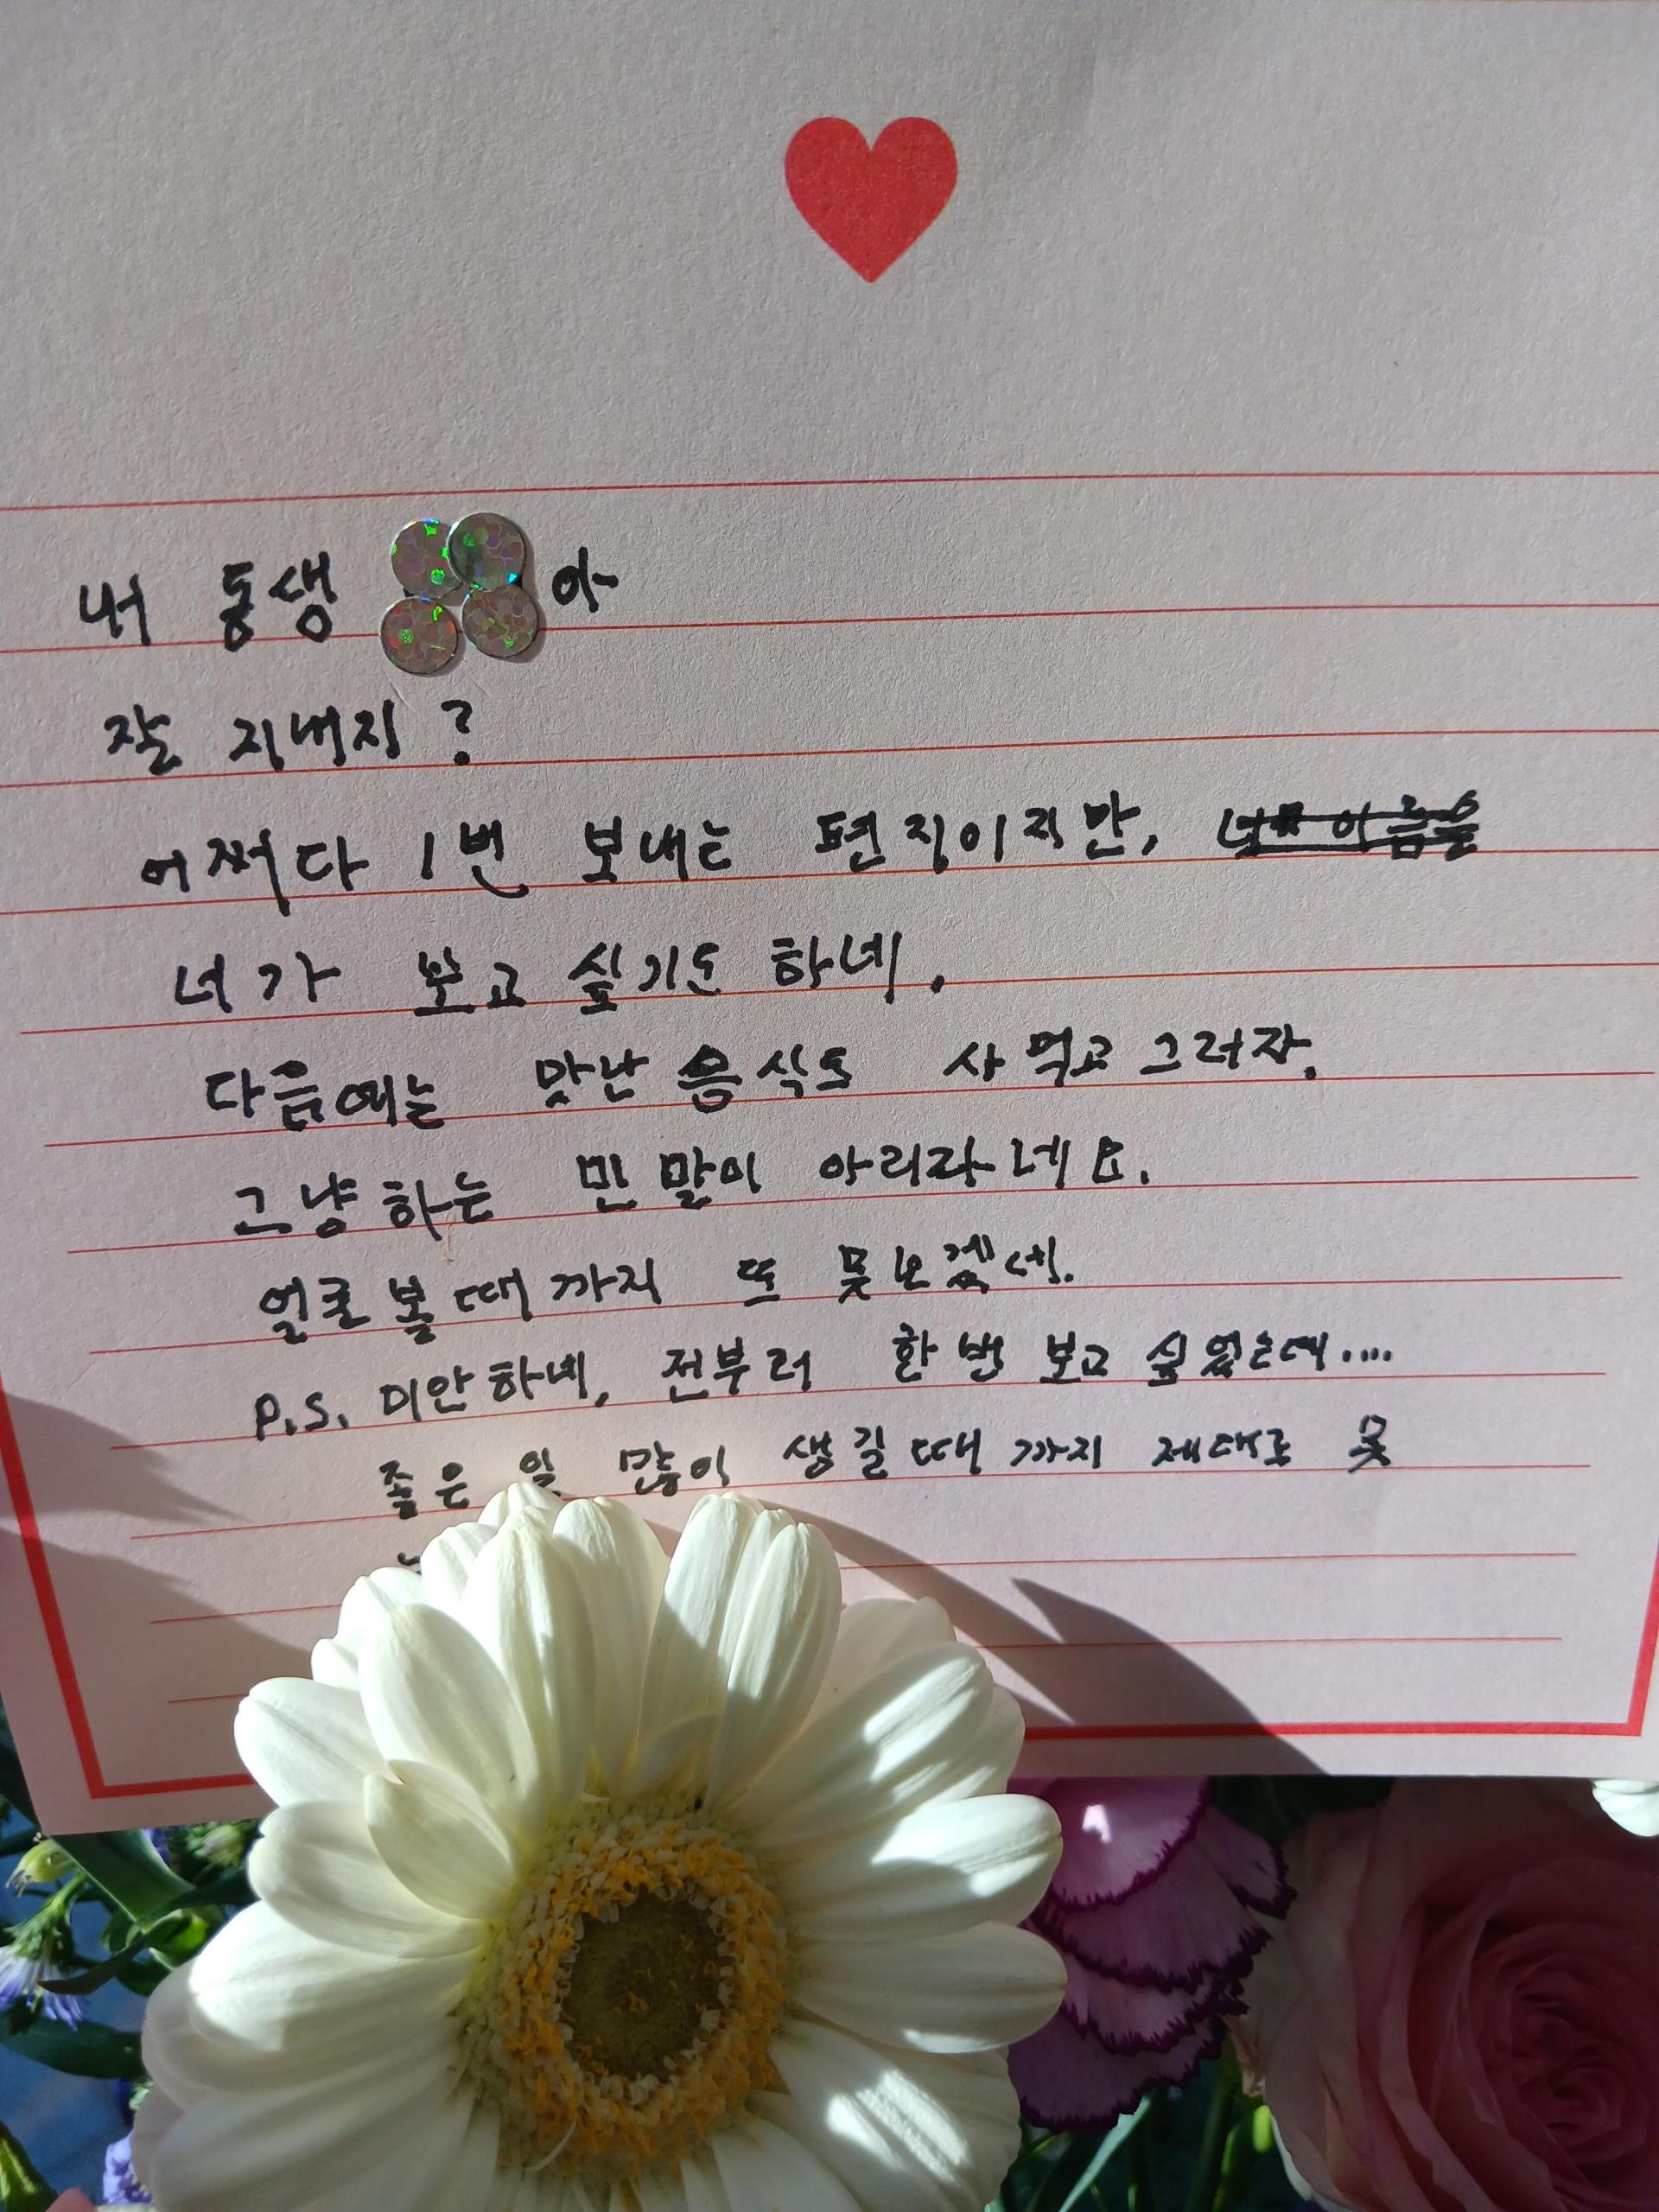 내 동생 아
잘 지내지?
어쩌다 1번 보내는 편지이지만,
너가 보고 싶기도 하네.
다음에는 맛난 음식도 사 먹고 그러자.
그냥하는 빈 말이 아리라네요.
얼굴 볼 때 까지 또 못보겠네.
P.S. 미안하네, 전부터 한 번 보고 싶었는데....
좋은 일 많이 생길 때 까지 제대로 못